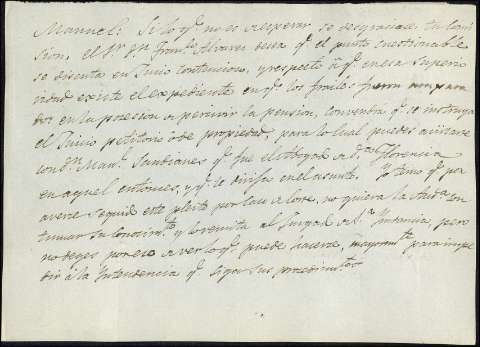 Manuel: Si lo q.e no es a esperar se desgraciase tu comi
sion, el S.or D.n Fran.co Alvarez desea q.e el punto cuestionable
se discuta en Juicio contencioso, y respecto á q.e en esa Superio
ridad existe el expediente en q.e los frailes fueron ampara
dos en la posesion a percivir la pension, convendrá q.e se instruya
el Juicio petitorio ó de propiedad, para lo cual puedes avistarte
con D.n Man.l Santianes q.e fue el Abogado de D.a Florencia
en aquel entonces, y q.e le dirija en el asunto. Yo temo q.e por
averse seguido este pleito por caso de Corte, no quiera la Aud.a con
tinuar su conocim.to y lo remita al Juzgado de 1.a Ynstancia, pero
no dejes por eso de ver lo q.e puede hacerse, mayorm.te para impe
dir á la Yntendencia q.e siga sus procedim.tos